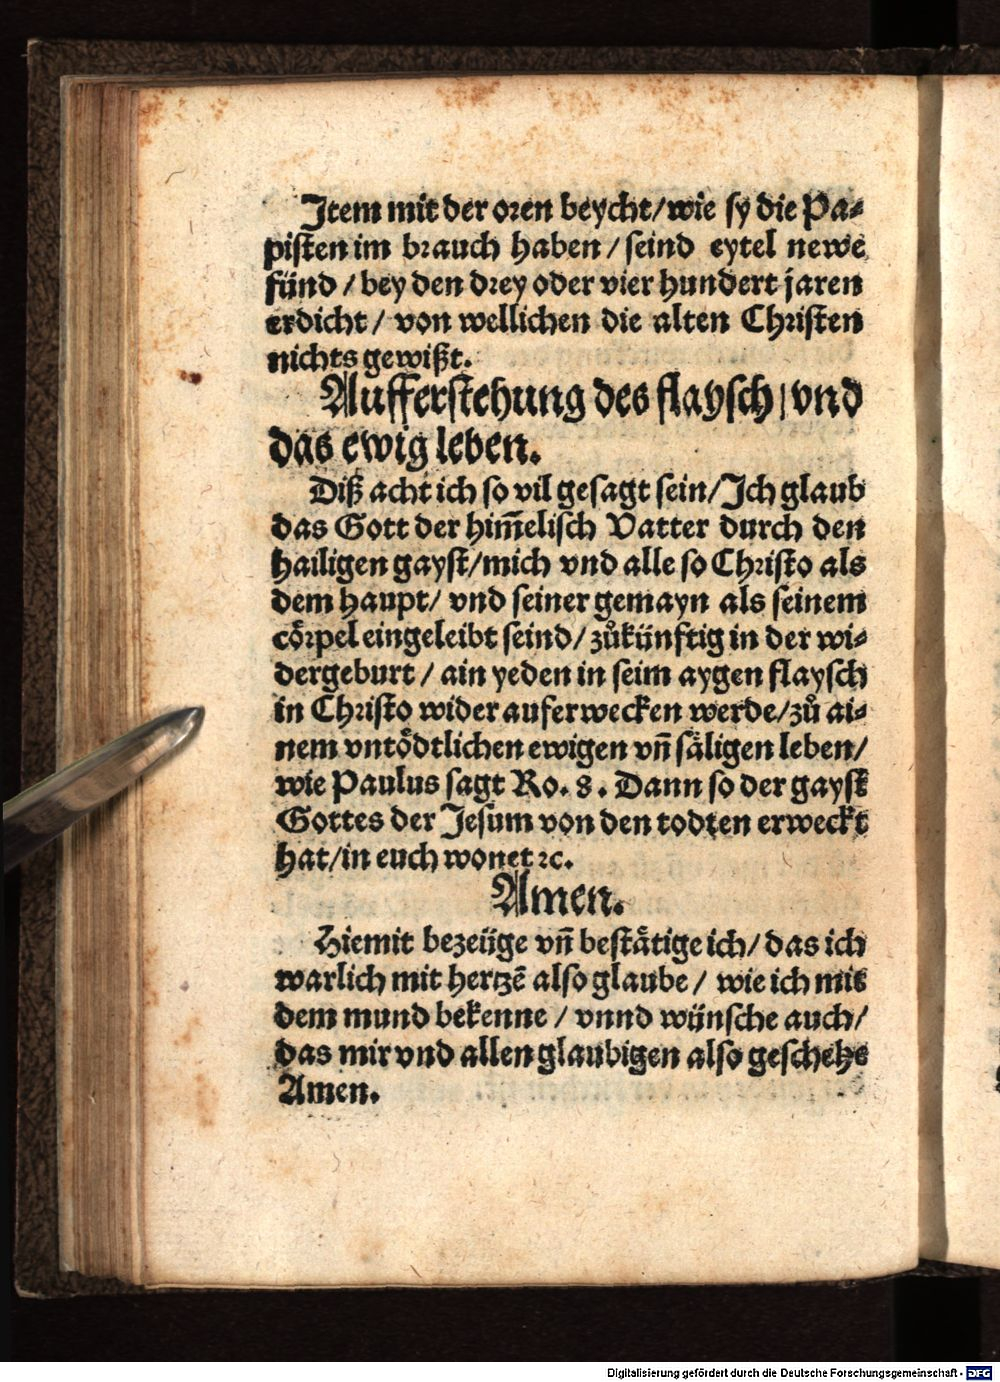 Item mit der oren beycht/wie sy die Pa⸗
pisten im brauch haben/seind eytel newe
fünd/bey den drey oder vier hundert jaren
erdicht/von wellichen die alten Christen
nichts gewißt.
Aufferstehung des flaysch/vnd
das ewig leben.
Diß acht ich so vil gesagt sein/Ich glaub
das Gott der him̃elisch Vatter durch den
hailigen gayst/mich vnd alle so Christo als
dem haupt/vnd seiner gemayn als seinem
cörpel eingeleibt seind/zůkünftig in der wi⸗
dergeburt/ain yeden in seim aygen flaysch
in Christo wider auferwecken werde/zů ai⸗
nem vntödtlichen ewigen vñ säligen leben/
wie Paulus sagt Ro. 8. Dann so der gayst
Gottes der Jesum von den todten erweckt
hat/in euch wonet ꝛc.
Amen.
Hiemit bezeüge vñ bestätige ich/das ich
warlich mit hertzẽ also glaube/wie ich mit
dem mund bekenne/vnnd wünsche auch/
das mir vnd allen glaubigen also geschehe
Amen.
Digitalisierung gefördert durch die Deutsche Forschungsgemeinschaft - DFG